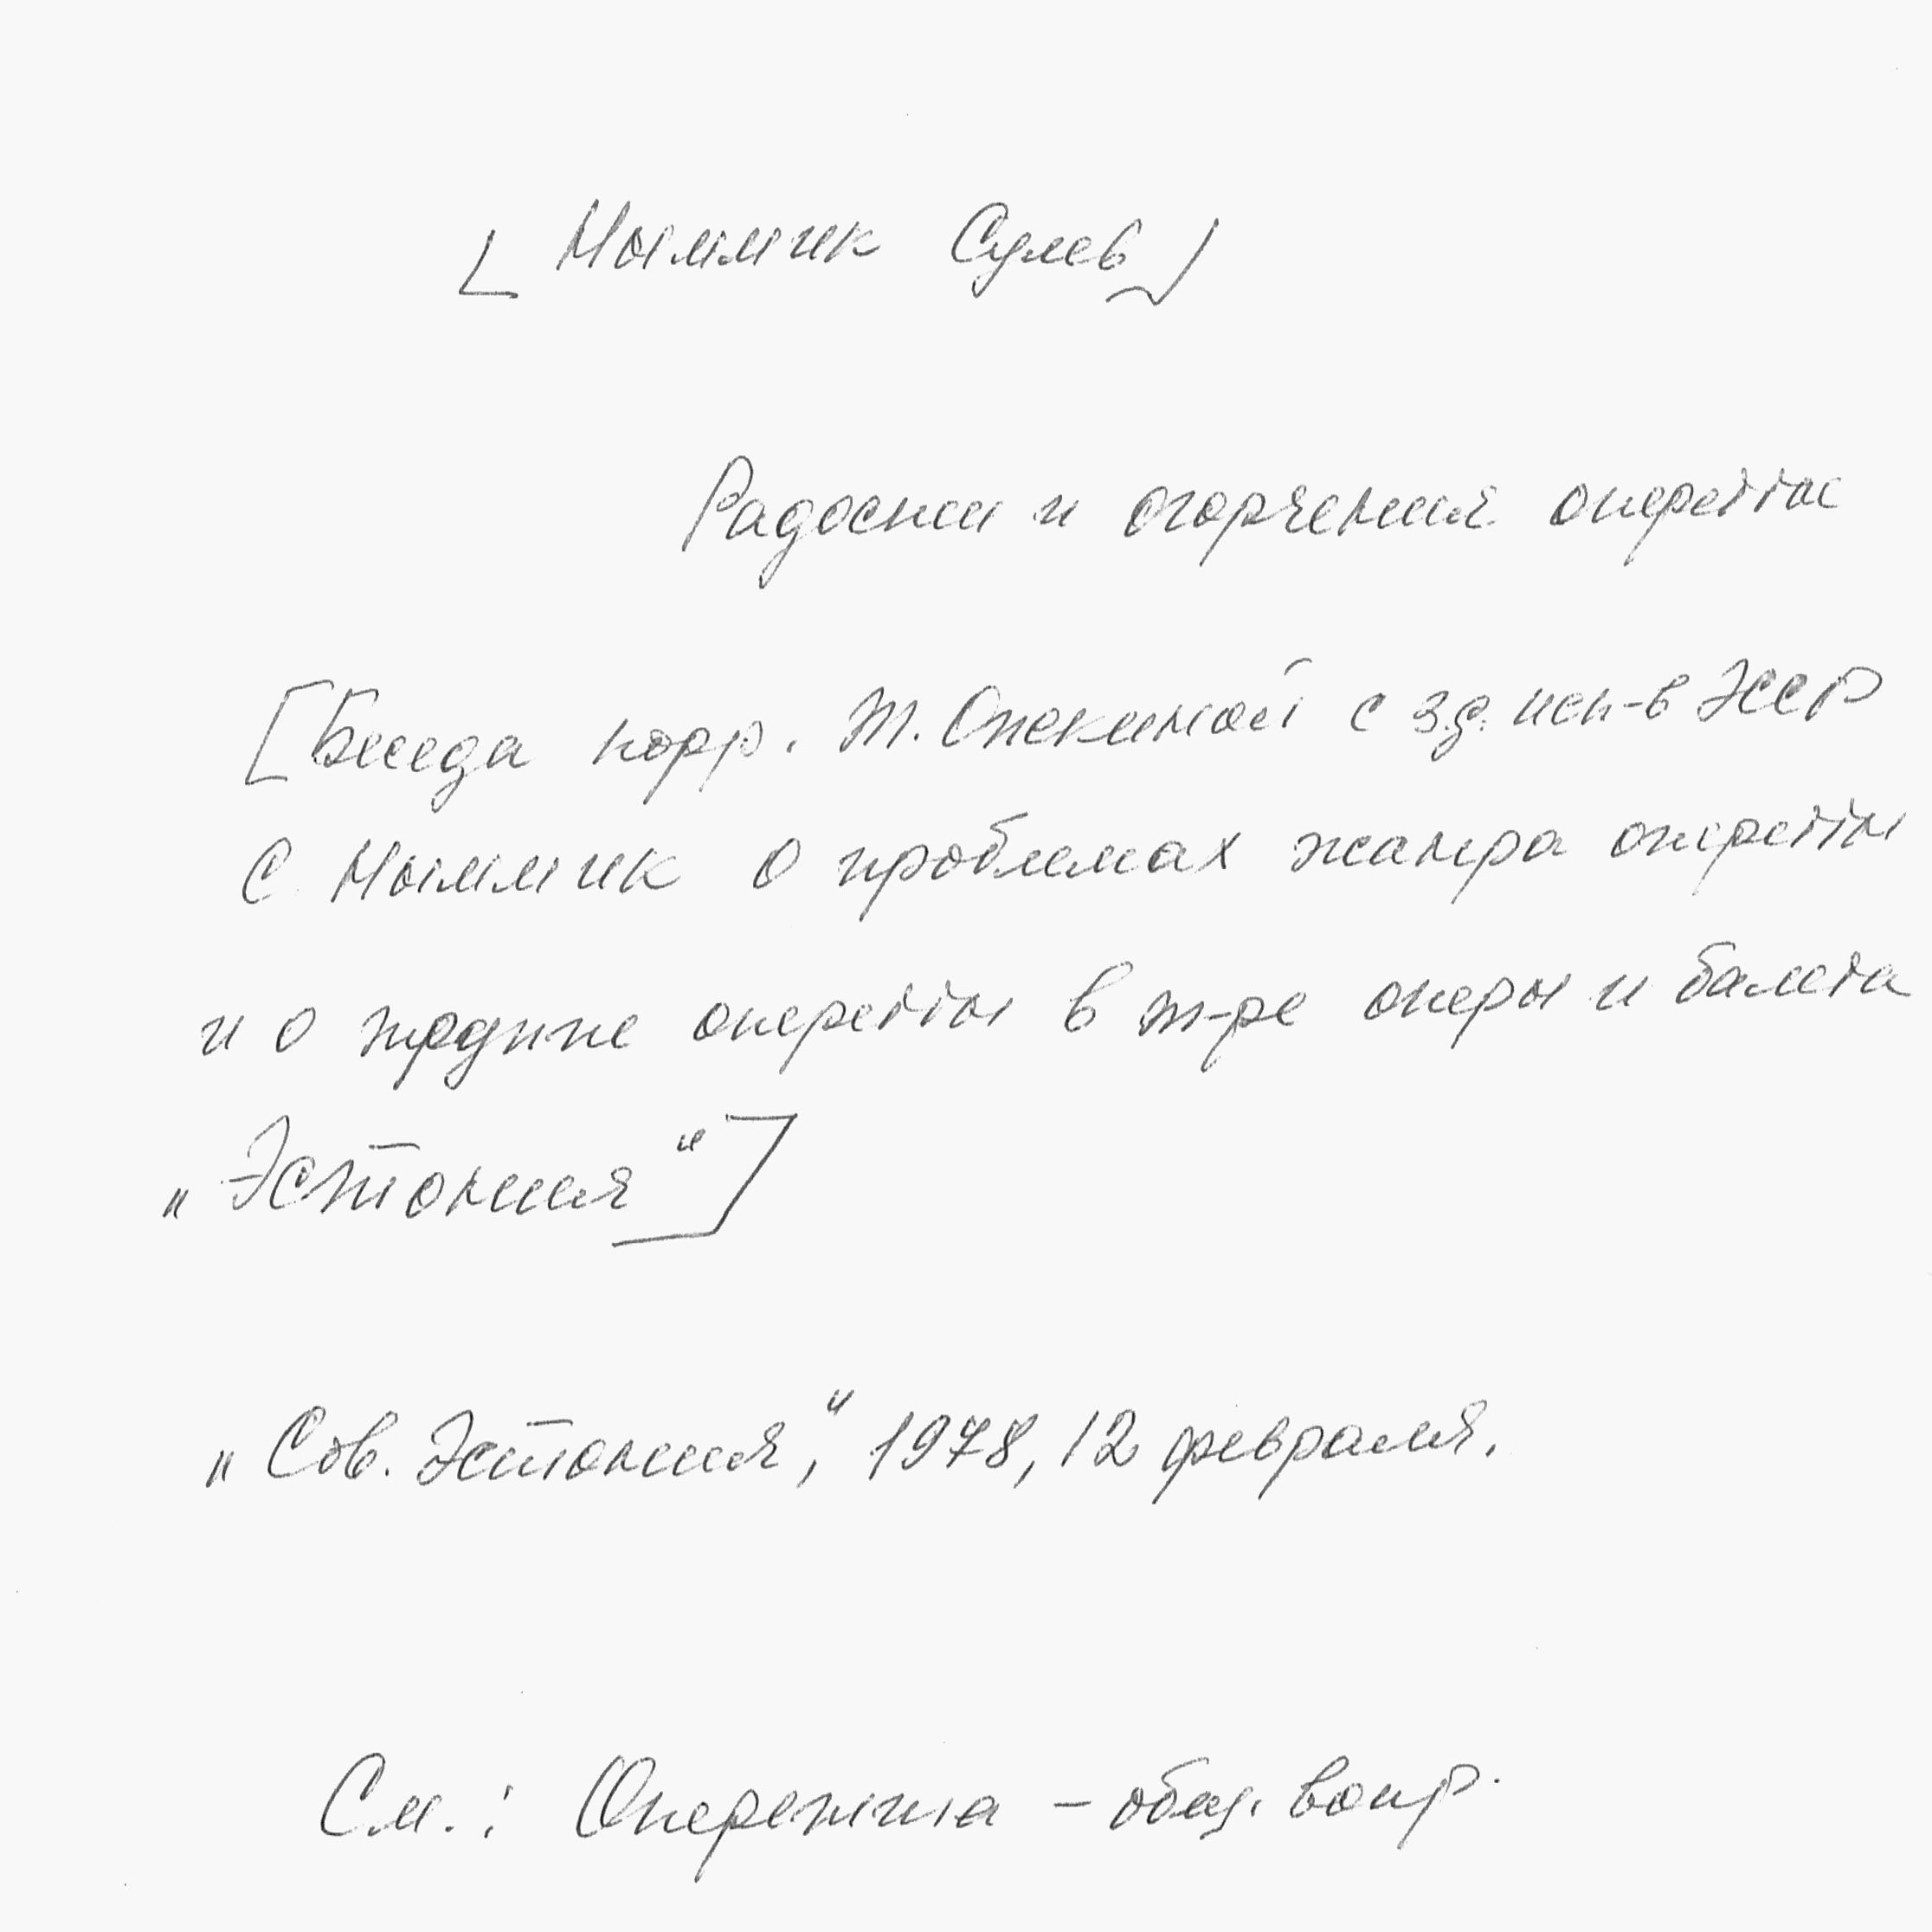 [Ныммик Сулев]
Радости и огорчения оперетты
[Беседа корр. Т. Опекиной с з.д. иск-в ЭССР
С Ныммик о проблемах жанра оперетты
и о труппе оперетты в т-ре оперы и балета
„Эстония“]
„Сов. Эстония“, 1978, 12 февраля.
См.: Оперетта – общ. вопр.